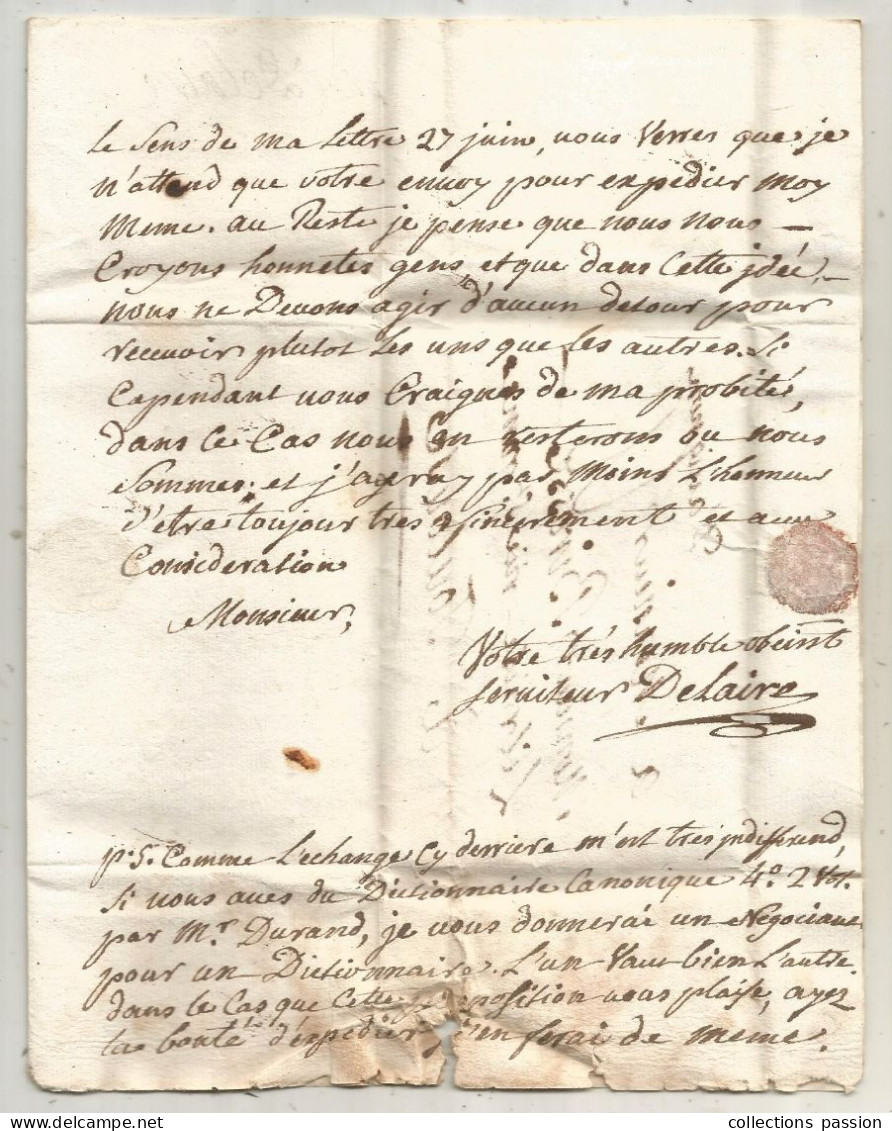 le Sens de ma lettre 27 juin, vous Verres que je
n'attend que votre envoy pour expedier moy
meme. au Reste je pense que nous nous —
Croyons honnetes gens et que dans Cette jdée,
nous ne Devons agir d'aucun detour pour
recevoir plutot Les uns que les autres. Si
Cependant vous Craignés de ma probité,
dans ce Cas nous en resterons ou nous
Sommes; et j'auray pas moins L'honneur
d'etre toujour tres sincerement et avec
Consideration
Monsieur,
Votre trés humble obeisst
serviteur Delaire
p. S. Comme L'echange Cy derriere m'est tres jndifferend,
Si vous aves du Dictionnaire Canonique 4o. 2 Vol.
par Mr. Durand, je vous donnerai un Negociant
pour un Dictionnaire. L'un Vaut bien L'autre.
dans le Cas que Cette position vous plaise, ayez
la bonté d'expedier j'en ferai de meme.
collections passion